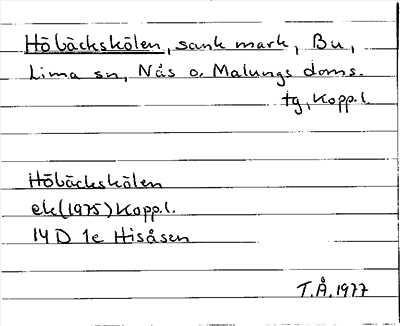 Höbäckskölen, sank mark, Bu,
Lima sn, Nås o. Malungs doms.
tg, Kopp.l.
Höbäckskölen
ek (1975) Kopp.l.
14 D 1e Hisåsen
T.Å. 1977